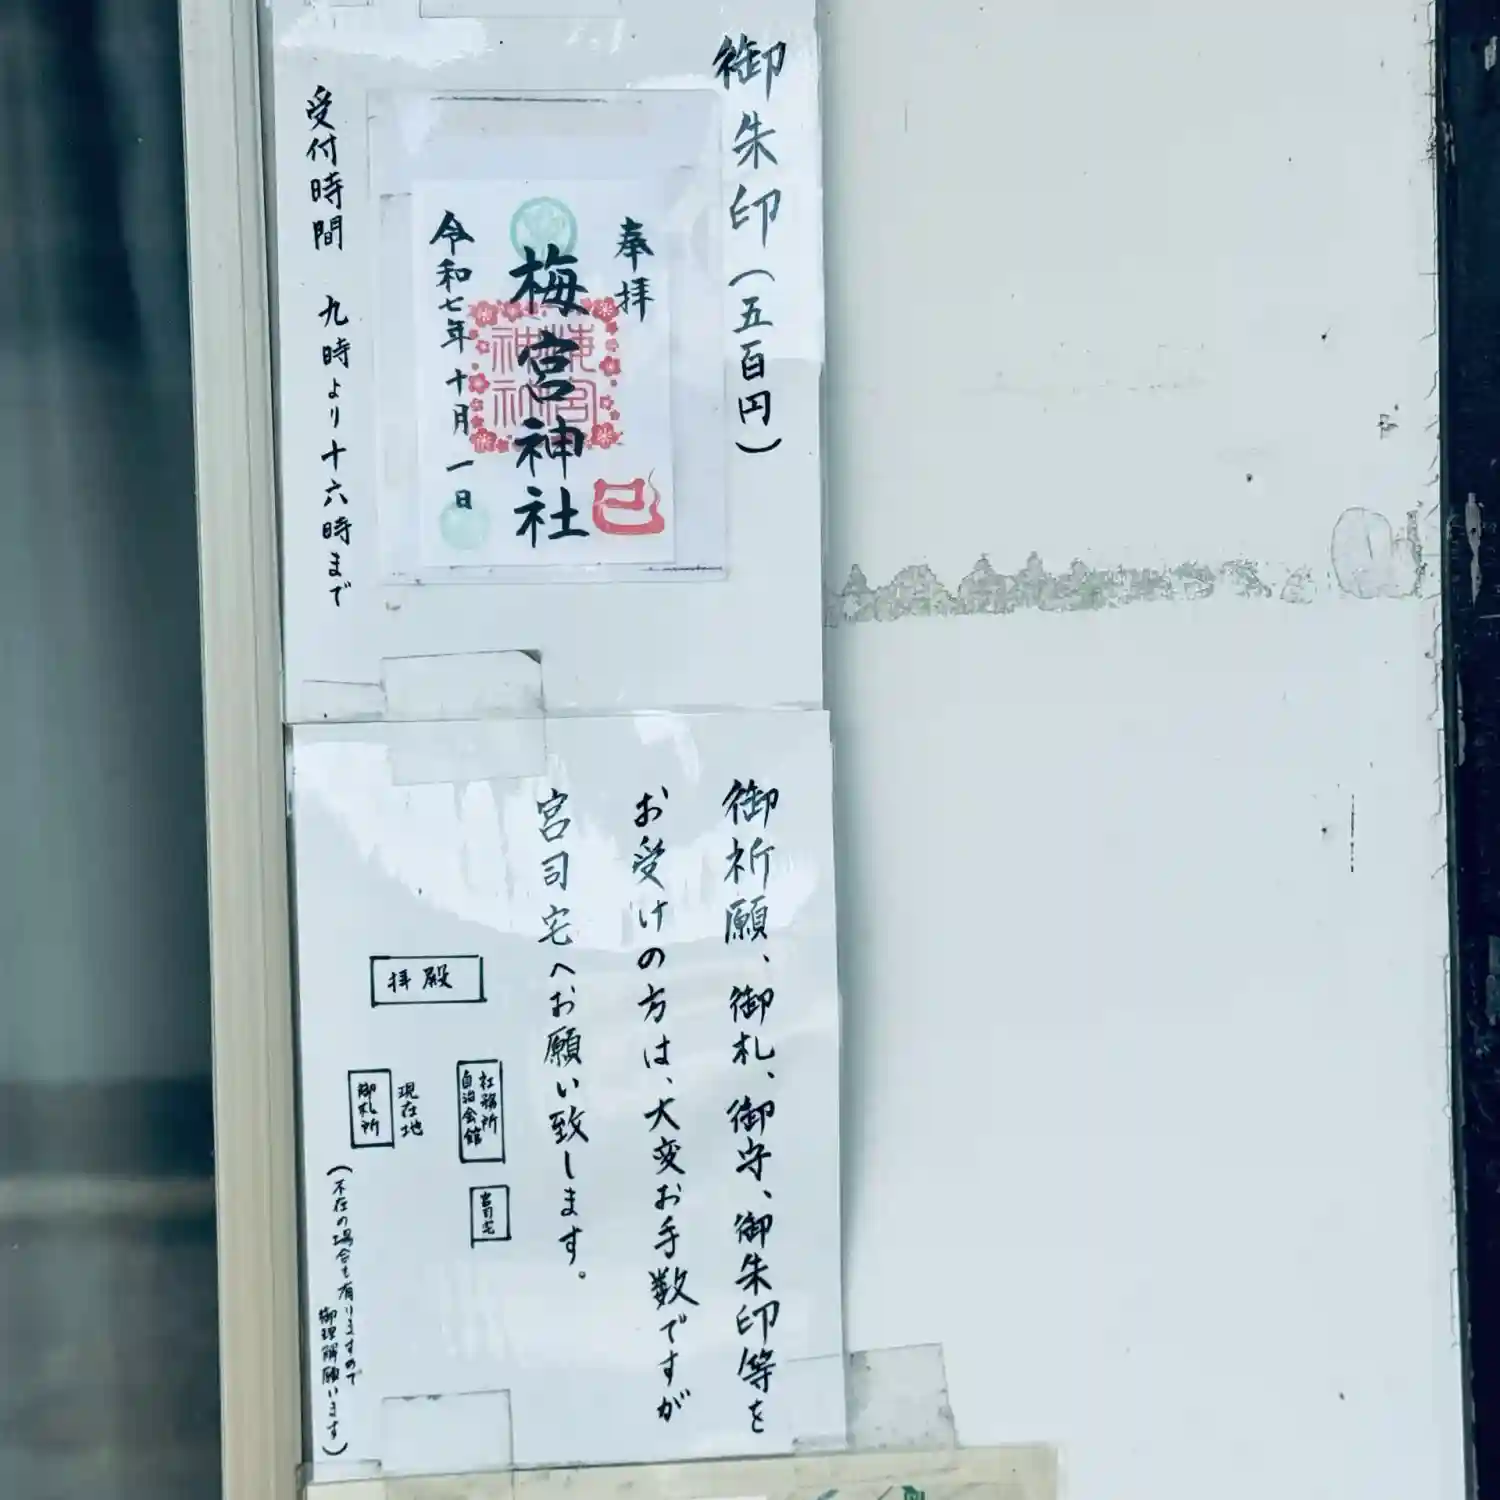 御朱印（五百円）
奉拝
梅宮神社
梅宮
神社
令和七年十月一日
巳
受付時間　九時より十六時まで
御祈願、御札、御守、御朱印等を
お受けの方は、大変お手数ですが
宮司宅へお願い致します。
拝殿
社務所
自治会館
宮司宅
現在地
御札所
（不在の場合も有りますので
御理解願います）